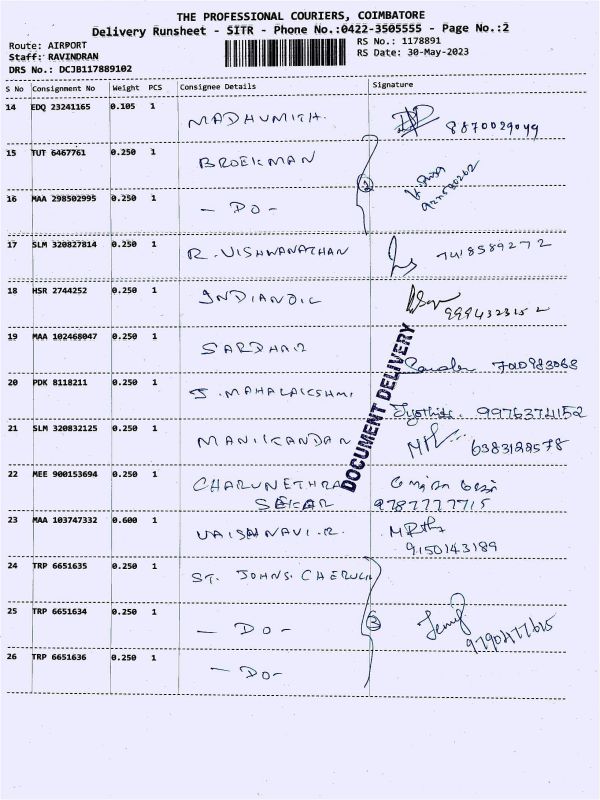 THE PROFESSIONAL COURIERS, COIMBATORE
Delivery Runsheet - SITR - Phone No.:0422-3505555 - Page No.:2
Route: AIRPORT
Staff: RAVINDRAN
DRS No.: DCJB117889102
RS No.: 1178891
RS Date: 30-May-2023
S No Consignment No Weight PCS Consignee Details Signature
14 EDQ 23241165 0.105 1 MADHUMITH. 8870029049
15 TUT 6467761 0.250 1 BROEKMAN
2
16 MAA 298502995 0.250 1 - DO -
17 SLM 320827814 0.250 1 R. VISHWANATHAN 7418589272
18 HSR 2744252 0.250 1 INDIANOIL 9994323152
19 MAA 102468047 0.250 1 SARDHAR
20 PDK 8118211 0.250 1 J. MAHALAKSHMI Jyothi 9976374152
21 SLM 320832125 0.250 1 MANIKANDAN 6383122578
22 MEE 900153694 0.250 1 CHARUNETHRA
SEKAR 9787777715
23 MAA 103747332 0.600 1 VAISHNAVI. R. 9150143189
24 TRP 6651635 0.250 1 ST. JOHNS CHERUCH
25 TRP 6651634 0.250 1 - DO - 3
26 TRP 6651636 0.250 1 - DO -
DOCUMENT DELIVERY